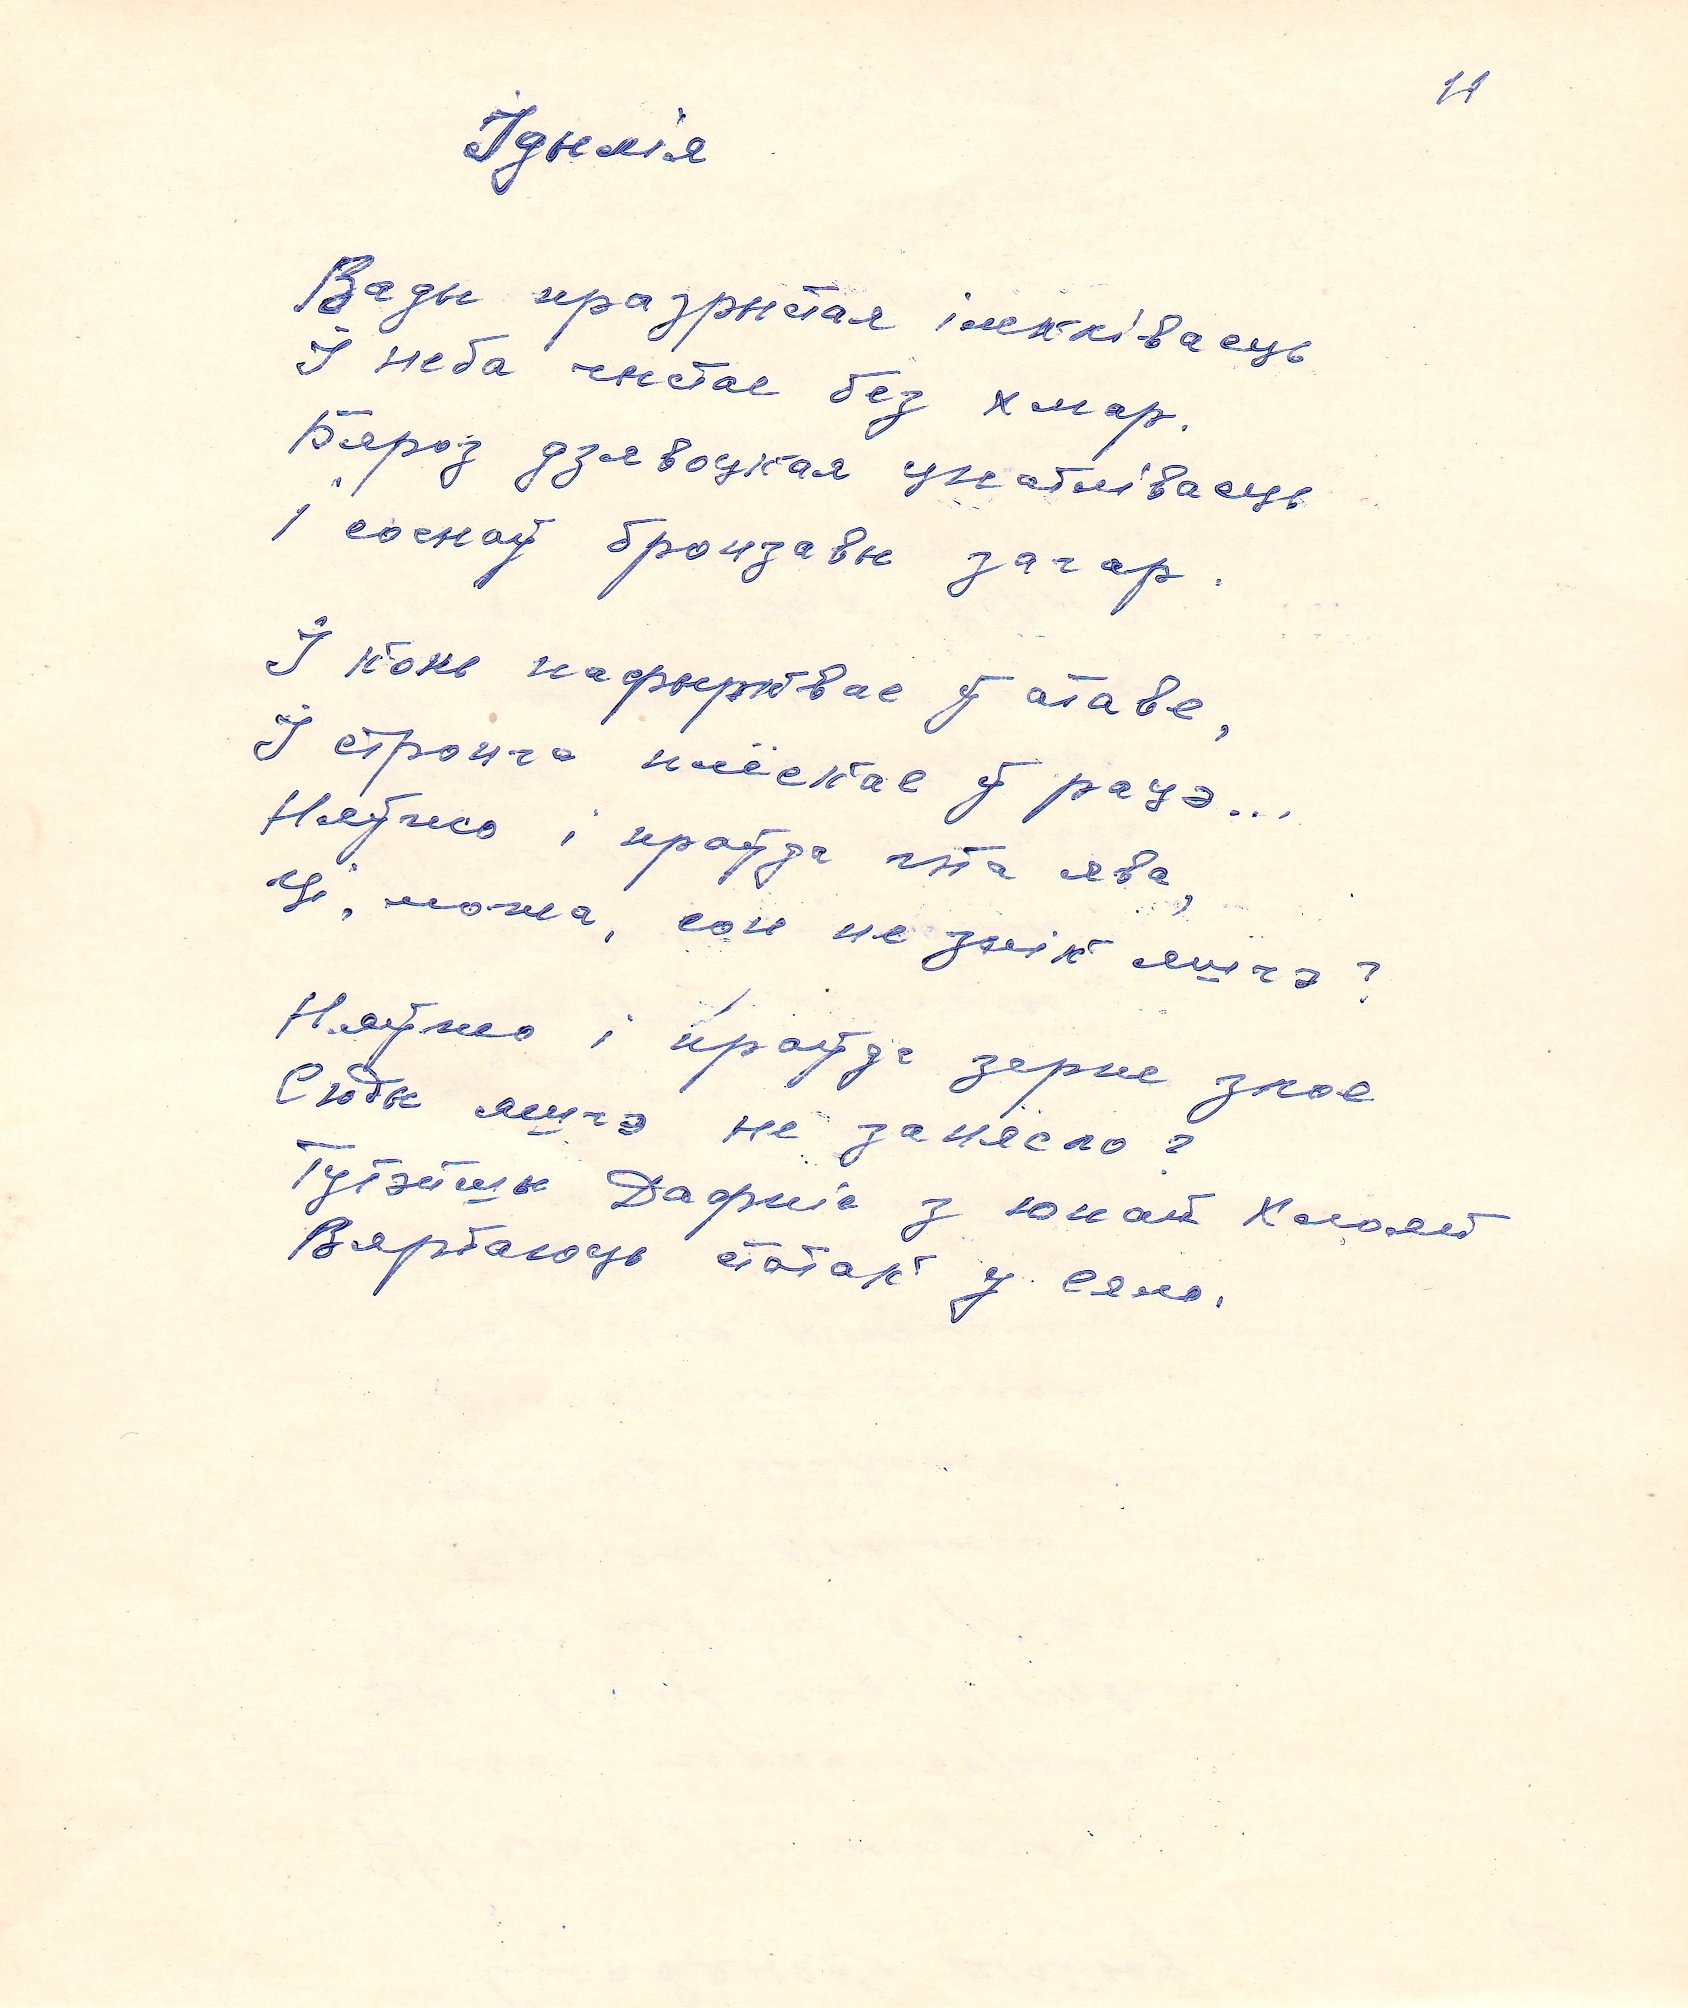 11
Ідылія
Вады празрыстая імклівасць
І неба чыстае без хмар.
Бяроз дзявоцкая цнатлівасць
І соснаў бронзавы загар.
І конь пафырквае ў атаве,
І стронга плёскае ў рацэ...
Няўжо і праўда гэта ява,
Ці, можа, сон не знік яшчэ?
Няўжо і праўда зерне злое
Сюды яшчэ не занясло?
Тутэйшы Дафніс з юнай Хлояй
Вяртаюць статак у сяло.